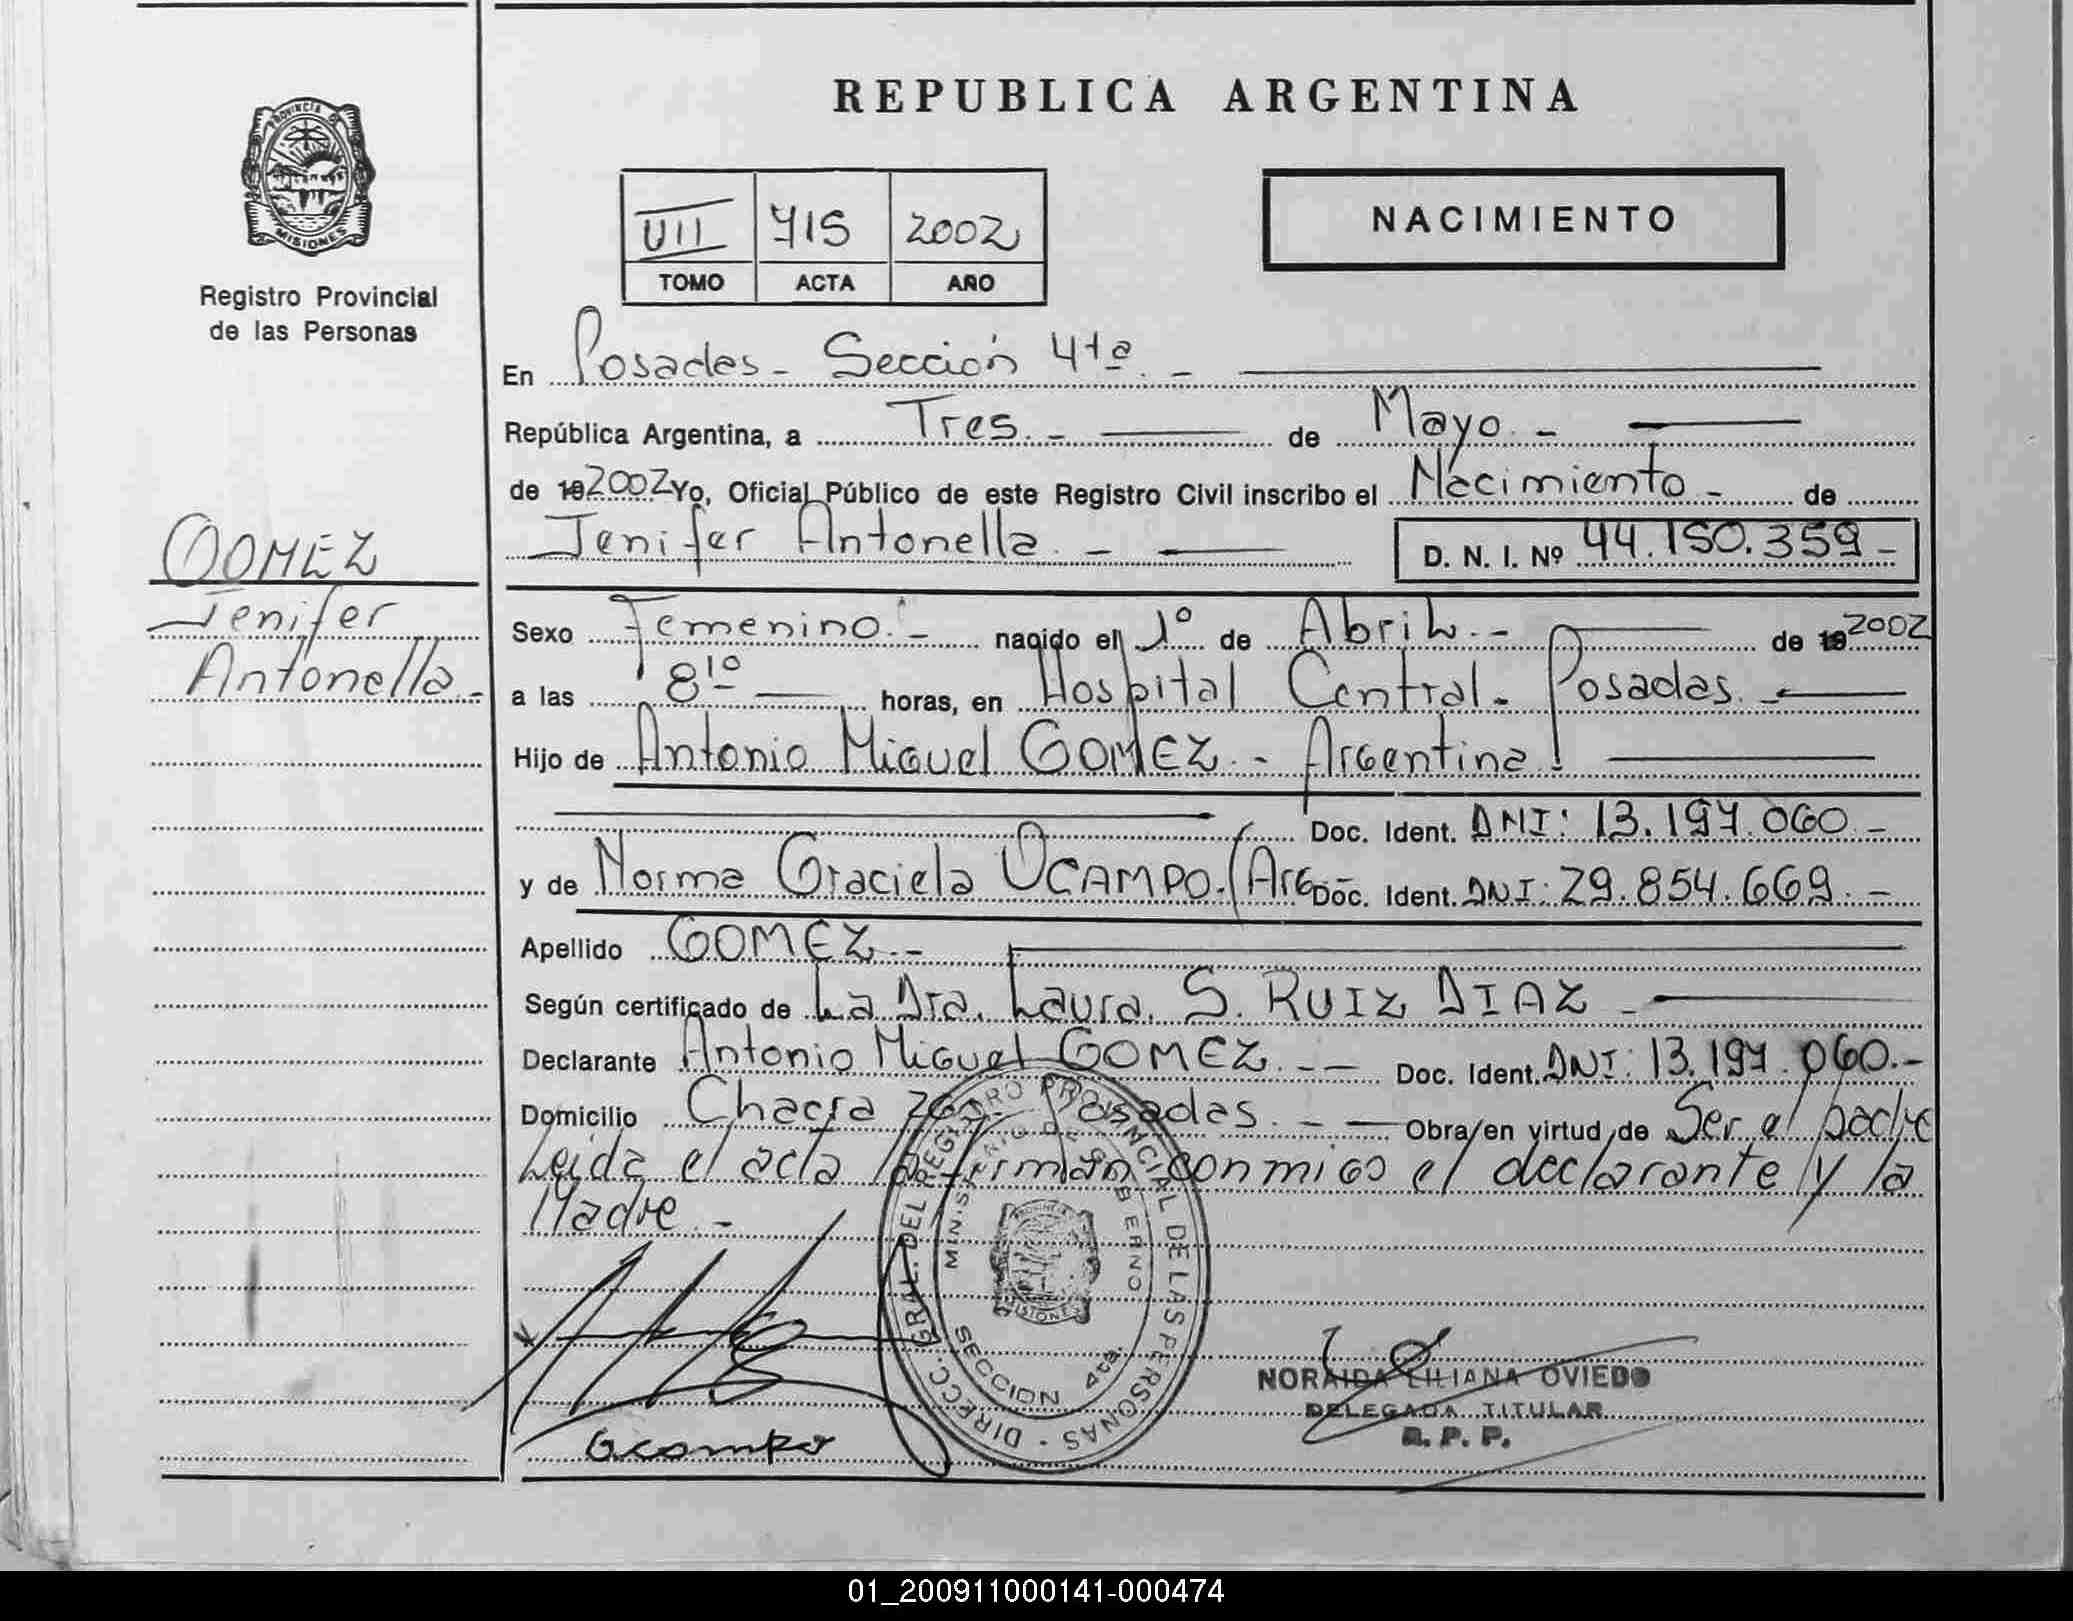 REPUBLICA ARGENTINA
PROVINCIA DE
MISIONES
Registro Provincial
de las Personas
VII 715 2002
TOMO ACTA AÑO
NACIMIENTO
En Posadas - Sección 4ta. -
República Argentina, a Tres. - de Mayo. -
de 192002 Yo, Oficial Público de este Registro Civil inscribo el Nacimiento - de
Jenifer Antonella. - D. N. I. Nº 44.150.359 -
GOMEZ
Jenifer
Antonella. -
Sexo Femenino. - nacido el 1º de Abril. - de 192002
a las 8 10 horas, en Hospital Central - Posadas. -
Hijo de Antonio Miguel GOMEZ. - Argentina
Doc. Ident. DNI: 13.197.060. -
y de Norma Graciela OCAMPO. (Arg. Doc. Ident. DNI: 29.854.669. -
Apellido GOMEZ. -
Según certificado de La Dra. Laura. S. RUIZ DIAZ -
Declarante Antonio Miguel GOMEZ. - - Doc. Ident. DNI: 13.197.060. -
Domicilio Chacra Posadas. - - Obra en virtud de Ser el padre
Leida el acta la firman conmigo el declarante y la
Madre. -
DIRECC. GRAL. DEL REGISTRO PROVINCIAL DE LAS PERSONAS
MINISTERIO DE GOBIERNO
SECCION 4ta.
Ocampo
NORAIDA LILIANA OVIEDO
DELEGADA TITULAR
R. P. P.
01_200911000141-000474